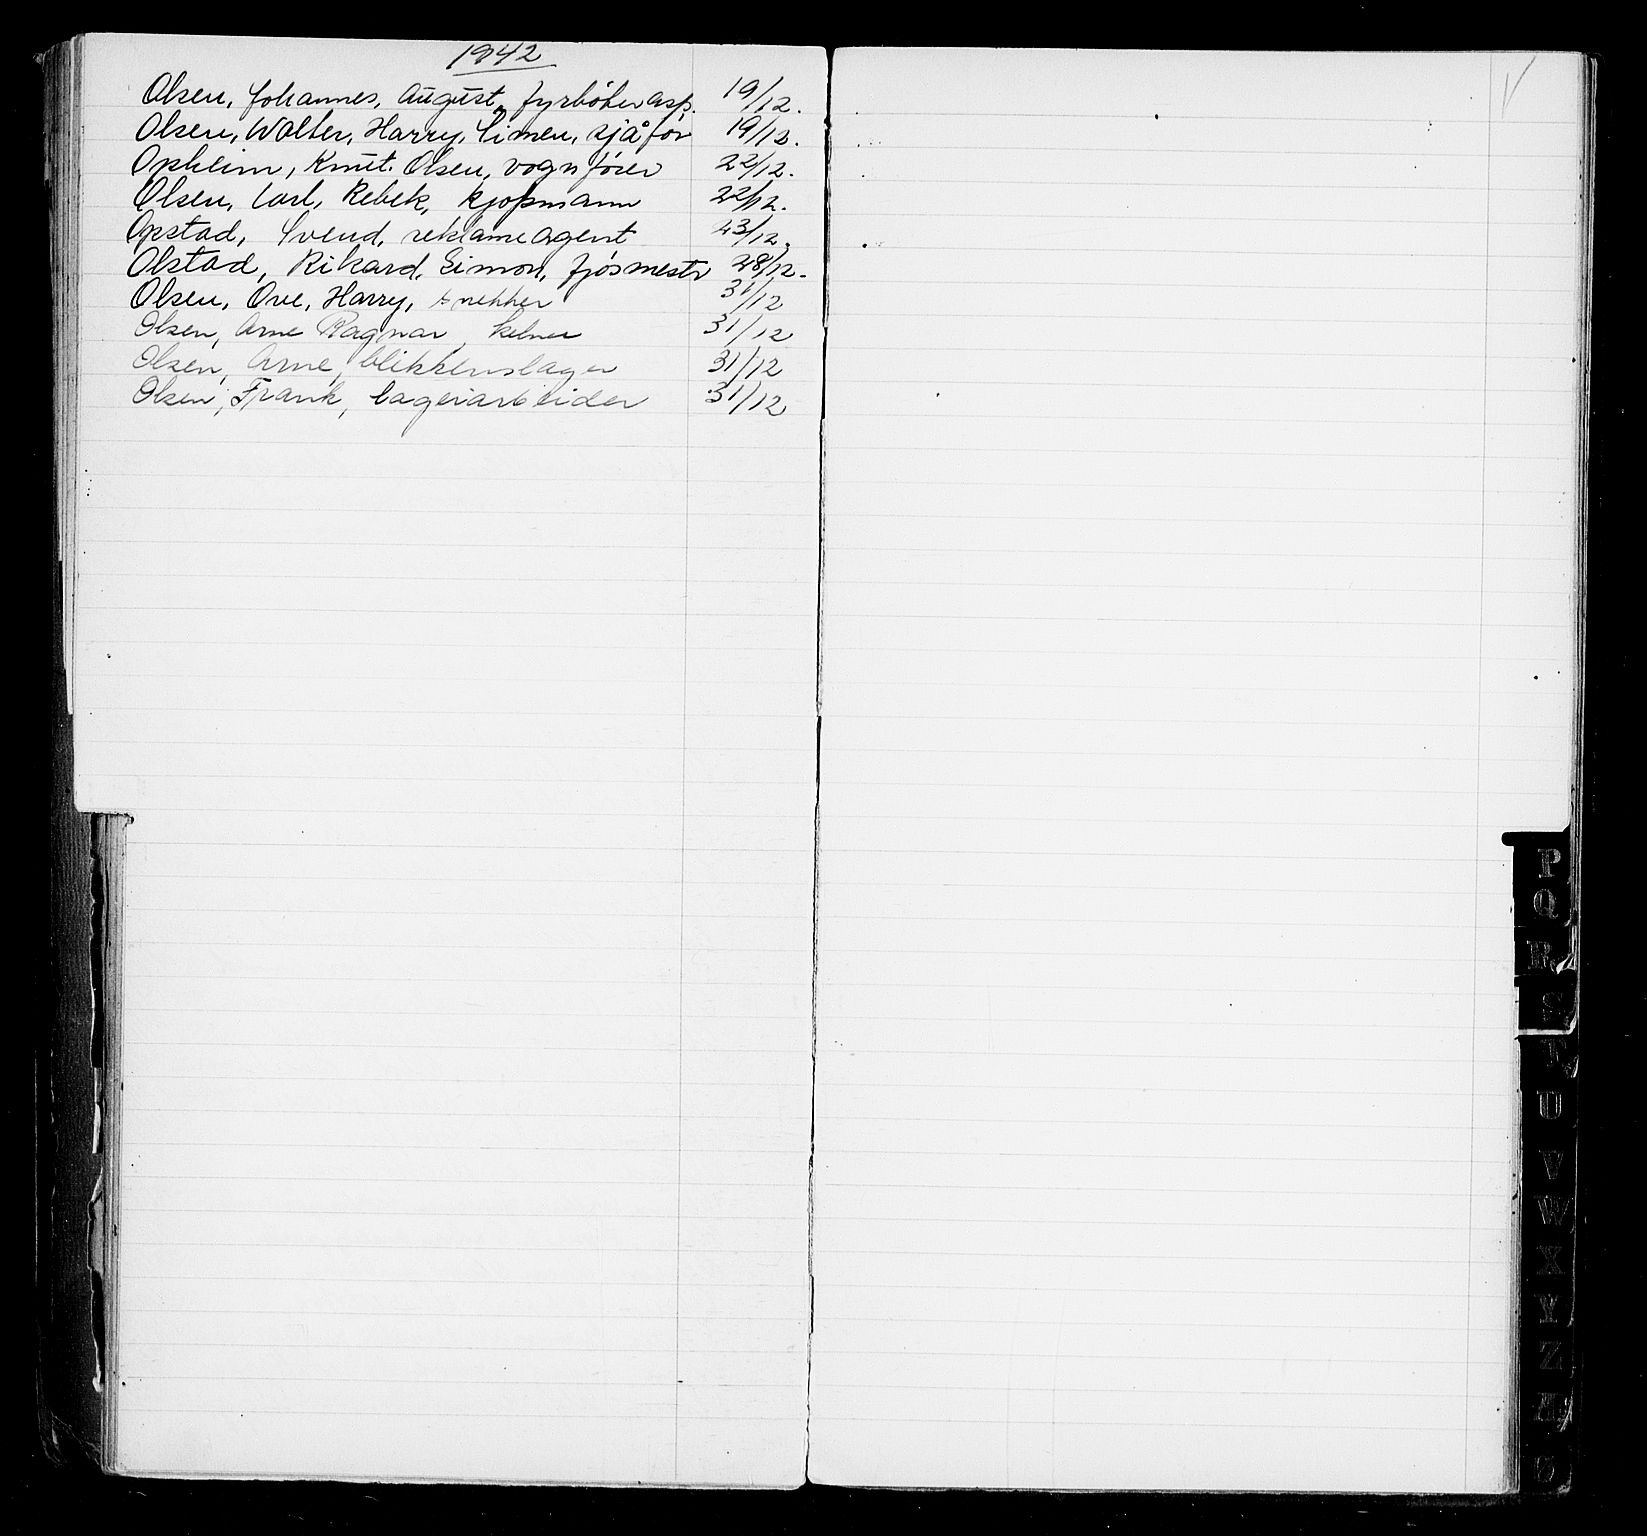 1942
Olsen, Johannes, August, fyrbøter asp. 19/12.
Olsen, Walter, Harry, Simen, sjåfør 19/12.
Opheim, Knut. Olsen, vognfører 22/12.
Olsen, Carl, Rebek, kjøpmann 22/12.
Opstad, Svend, reklameagent 23/12.
Olstad, Rikard, Simon, fjøsmestr 28/12.
Olsen, Ove, Harry, snekker 31/12
Olsen, Arne Ragnar, kelner 31/12
Olsen, Arne, blikkenslager 31/12
Olsen, Frank, lagerarbeider 31/12
V
P
Q
R
S
T
U
V
W
X
Y
Z